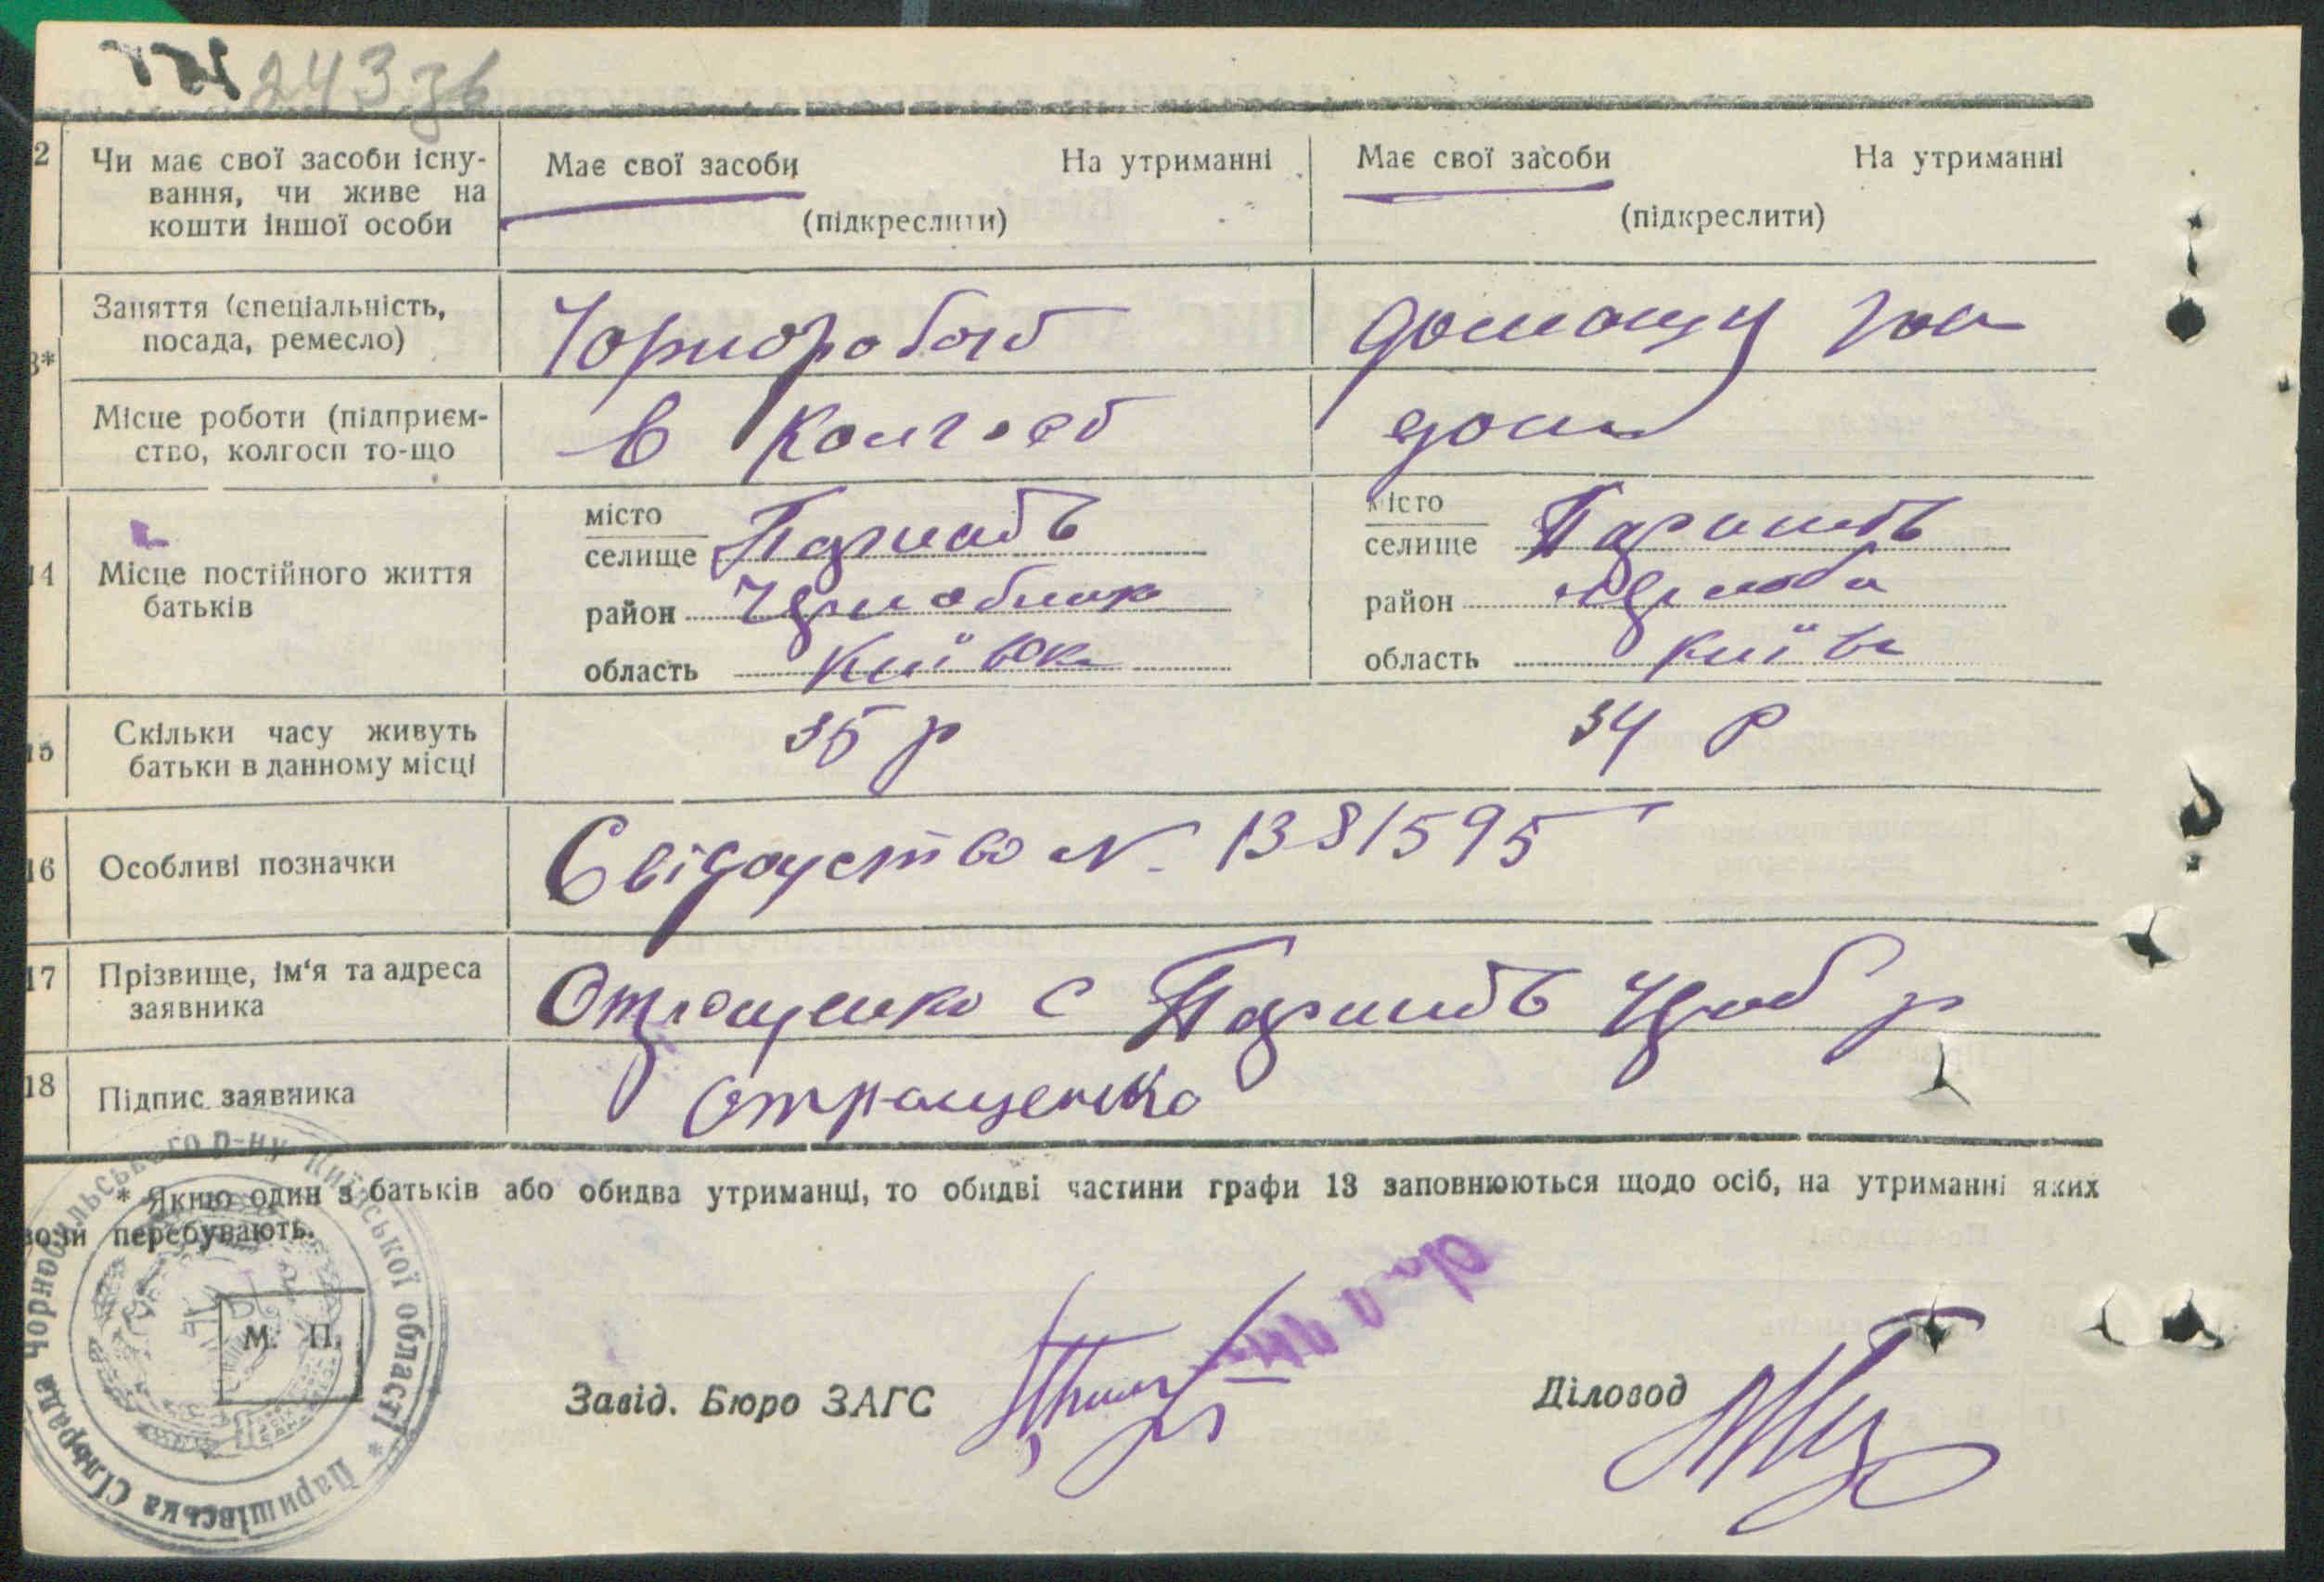 24336
2 Чи має свої засоби існу-
вання, чи живе на
кошти іншої особи
Має свої засоби На утриманні
(підкреслити)
Має свої засоби На утриманні
(підкреслити)
3* Заняття (спеціальність,
посада, ремесло)
Чорноробоч
домашу гос
Місце роботи (підприєм-
ство, колгосп то-що
в колгосп
дома
14 Місце постійного життя
батьків
місто
селище Паришів
район Чорнобильск
область Київск
місто
селище Паришів
район Чорноб
область Київ
15 Скільки часу живуть
батьки в данному місці
35 р
34 р
16 Особливі позначки
Свідоцтво № 1381595
17 Прізвище, ім'я та адреса
заявника
Отрощенко с Паришів Чоб р
18 Підпис заявника
Отрощенко
* Якщо один з батьків або обидва утриманці, то обидві частини графи 13 заповнюються щодо осіб, на утриманні яких
вони перебувають.
Паришівська Сільрада Чорнобильського р-ну Київської області *
М. П.
Завід. Бюро ЗАГС
Діловод